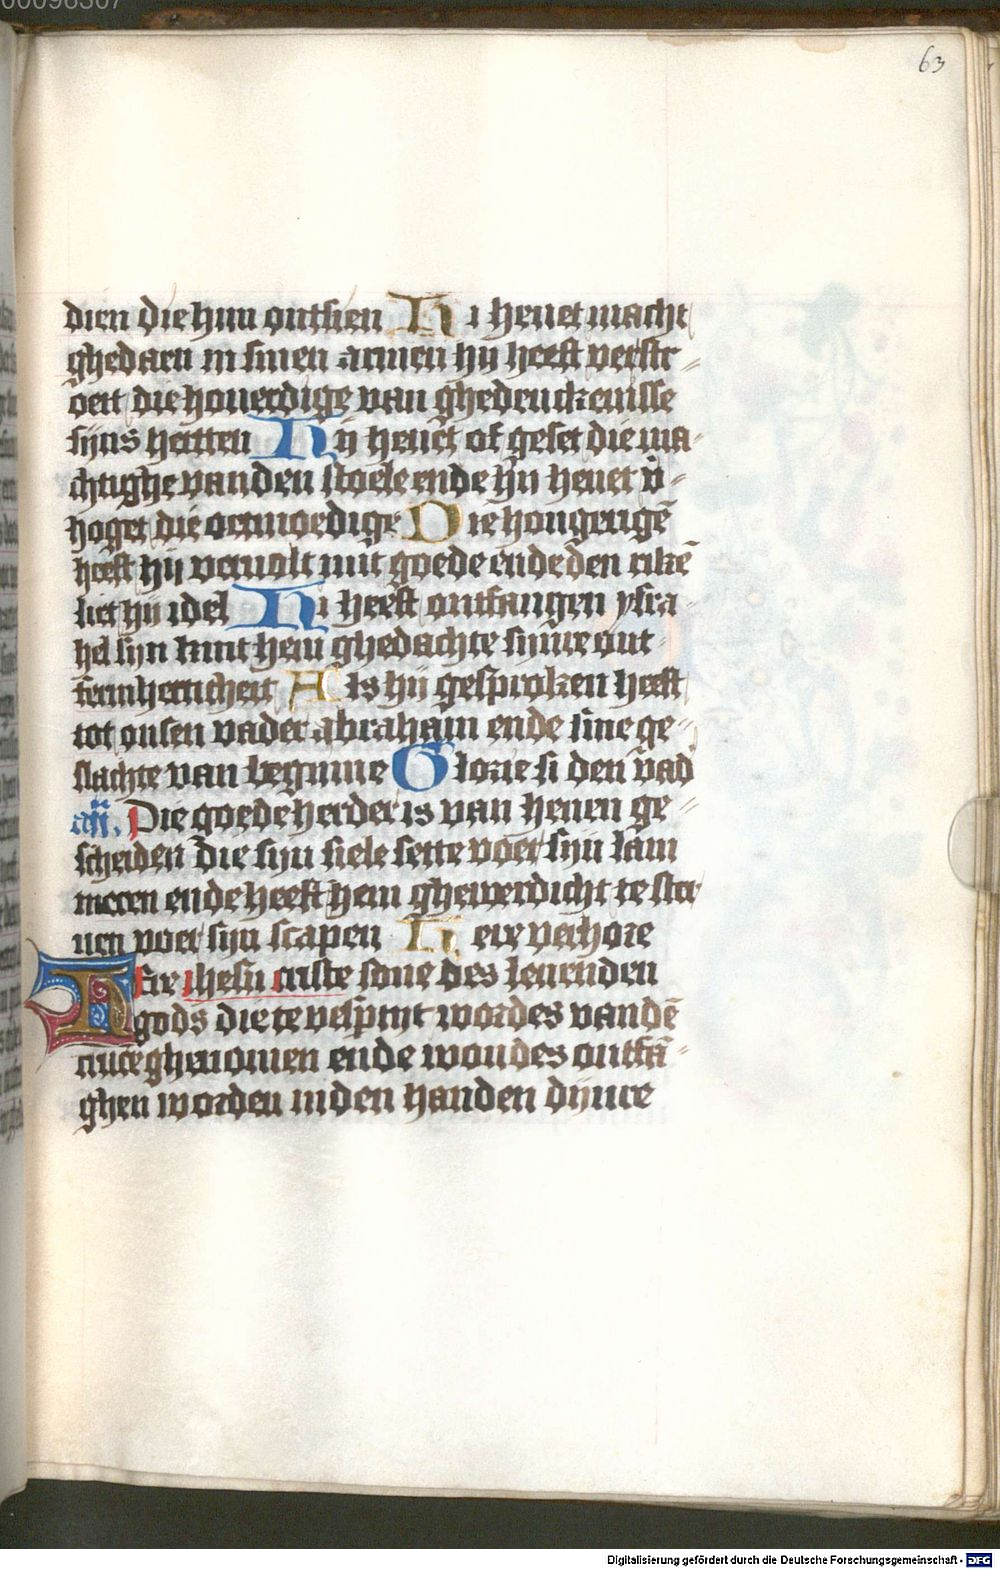 63
dien die hnn ontsien Hi heuet macht
ghedaen in sinen armen hy heeft verstr-
oeit die houerdige van ghedenckenisse
sijns hertten Hy heuet of geset die ma-
chtighe van den stoele ende hij heuet v̄-
hoget die oetmoedige Die hongerigē
heeft hij veruolt mit goede ende den rikē
liet hij idel Hi heeft ontfangen ysra-
hel sijn kint hem ghedachte sijnre ont-
fermherticheit Als hij gesproken heeft
tot onsen vader abraham ende sine ge-
slachte van beginne Glorie si den vad̄
añ. Die goede herder is van henen ge-
scheiden Die sijn siele sette voer sijn lam
meren ende heeft hem ghewerdicht te ster
uen voer sijn scapen Here verhore
Here ihesu criste sone des leuenden
gods die te vespertijt wordes van dē
cruce ghenomen ende woudes ontfā-
ghen worden in den handen dijnre
Digitalisierung gefördert durch die Deutsche Forschungsgemeinschaft - DFG